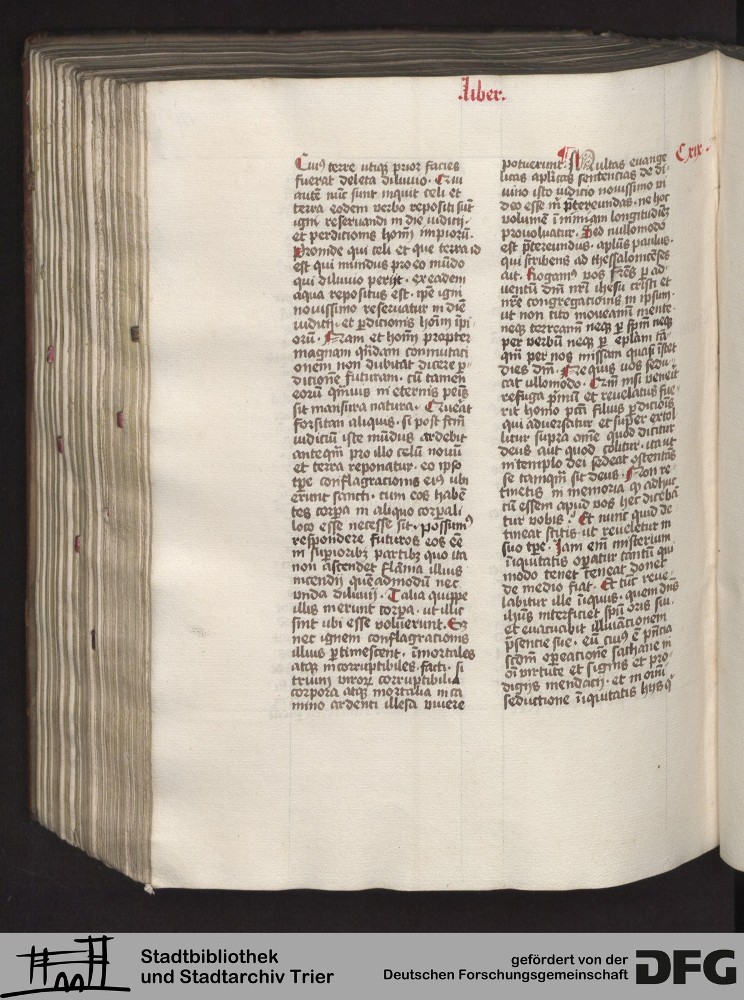 .liber.
Cui9 terre utiq3 prior facies
fuerat deleta diluuio. Qui
autē nūc sunt inquit celi et
terra eodem verbo repositi sūt
igni reseruandi in die iudicij.
et perditionis homī impiorū.
Proinde qui celi et que terra id
est qui mundus pro eo mūdo
qui diluuio perijt. ex eadem
aqua repositus est. ipē igni
nouissimo reseruatur in diē
iudicij. et p̄ditionis homī īpi
orū. Nam et homī propter
magnam qn̄dam conmutati
onem non dubitat dicere p̄
ditionē futuram. cū tamen
eorū qm̄uis in eternis penis
sit mansura natura. Querat
forsitan aliquis. si post factū
iudiciū iste mūdus ardebit
anteqm̄ pro illo celū nouū
et terra reponatur. eo ipso
tpē conflagracionis ei9 ubi
erunt sancti. cum eos habē
tes corpa in aliquo corpali
loco esse necesse sit. possum9
respondere futuros eos eē
in superiorib3 partib3 quo ita
non ascendet flāma illius
incendij quēadmodū nec
vnda diluuij. Talia quippe
illis inerunt corpa. ut illic
sint ubi esse voluerunt. Sz
nec ignem conflagracionis
illius p̄timescent. īmortales
atq3 incorruptibiles facti. si
trium virorz corruptibilia
corpora atq3 mortalia in ca
mino ardenti illesa viuere
Cxix.
potuerunt. Multas euange
licas aplicas sentencias de di
uino isto iudicio nouissimo vi
deo esse m̄ p̄tereundas. ne hoc
volumē ī nimiam longitudiez
prouoluatur. Sed nullomodo
est p̄tereundus. aplus paulus.
qui scribens ad thessalonicēses
ait. Rogam9 vos frēs p ad
uentū dm̄ nrī ihesu cristi et
nrē congregacionis in ipsum.
ut non cito moueamī mente.
neq3 terreamī neq3 p spm̄ neq3
per verbū neq3 p eplam tā
qm̄ per nos missam quasi īstet
dies dm̄. Ne quis vos sedu
cat ullomodo. Qm̄ nisi venerit
refuga p̄mū et reuelatus fue
rit homo pctī filius p̄dicionis
qui aduersatur et super extol
litur supra omē quod dicitur
deus aut quod colitur. ita ut
in templo dei sedeat ostentās
se tamqm̄ sit deus. Non re
tinetis in memoria q adhuc
cū essem apud vos hec dicebā
tur vobis. Et nunc quid de
tineat scitis ut reueletur in
suo tpē. Iam em̄ misterium
īiquitatis opatur tantū qui
modo tenet teneat donec
de medio fiat. Et tūc reue
labitur ille īiquus. quem dns
ihus interficiet spū oris sui.
et euacuabit illuiacionem
p̄sentie sue. eū cui9 ē p̄ntia
scdm̄ operacionē sathane in
oī virtute et signis et pro
digijs mendacij. et in omī
seductione īiquitatis hijs q
Stadtbibliothek
und Stadtarchiv Trier
gefördert von der
Deutschen Forschungsgemeinschaft
DFG